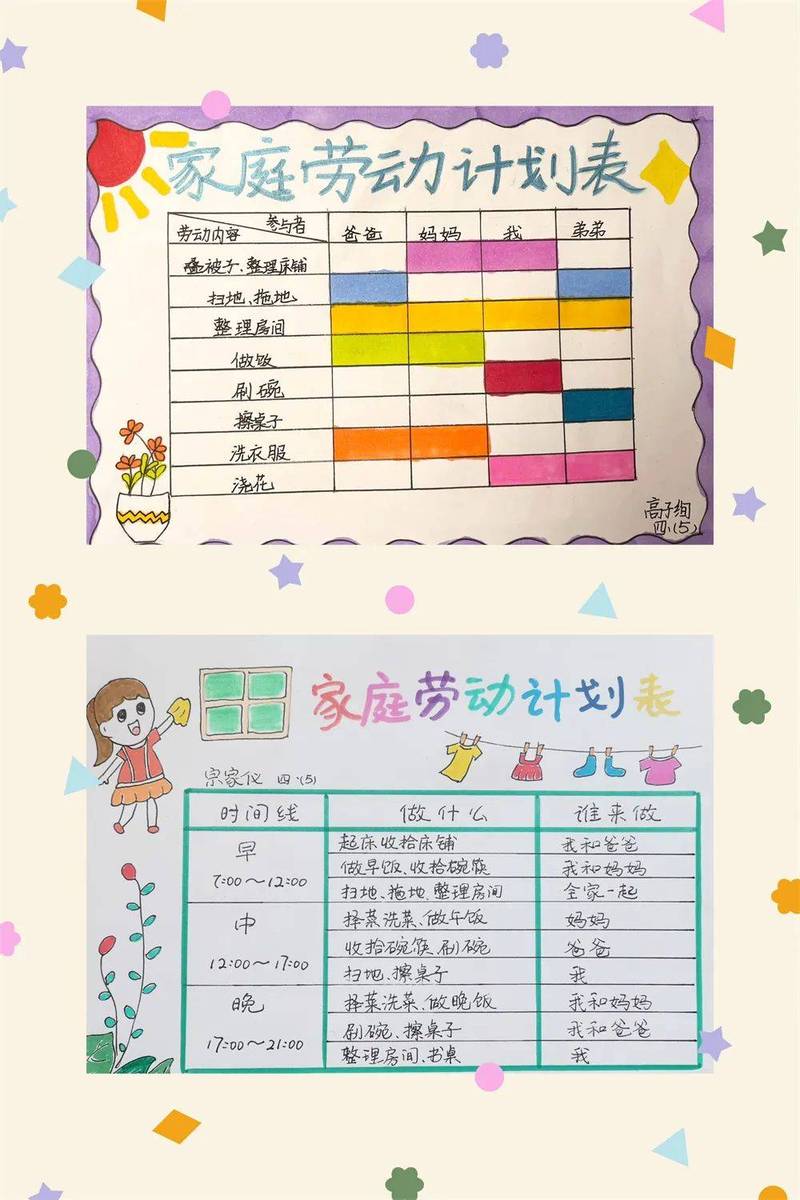 家庭劳动计划表
参与者
劳动内容 爸爸 妈妈 我 弟弟
叠被子、整理床铺
扫地、拖地
整理房间
做饭
刷碗
擦桌子
洗衣服
浇花
高子绚
四.(5)
家庭劳动计划表
宗家仪 四.(5)
时间线 做什么 谁来做
早
7:00~12:00
起床收拾床铺 我和爸爸
做早饭、收拾碗筷 我和妈妈
扫地、拖地、整理房间 全家一起
中
12:00~17:00
择菜洗菜、做午饭 妈妈
收拾碗筷、刷碗 爸爸
扫地、擦桌子 我
晚
17:00~21:00
择菜洗菜、做晚饭 我和妈妈
刷碗、擦桌子 我和爸爸
整理房间、书桌 我